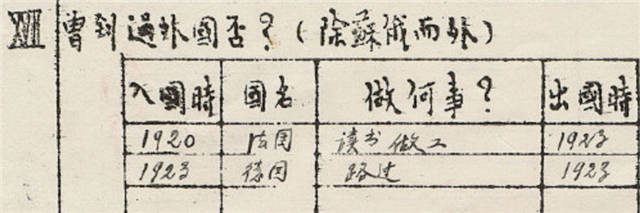 XII 曾到過外國否？（除蘇俄而外）
入國時 国名 做何事？ 出國時
1920 法国 读书做工 1923
1923 德国 路过 1923